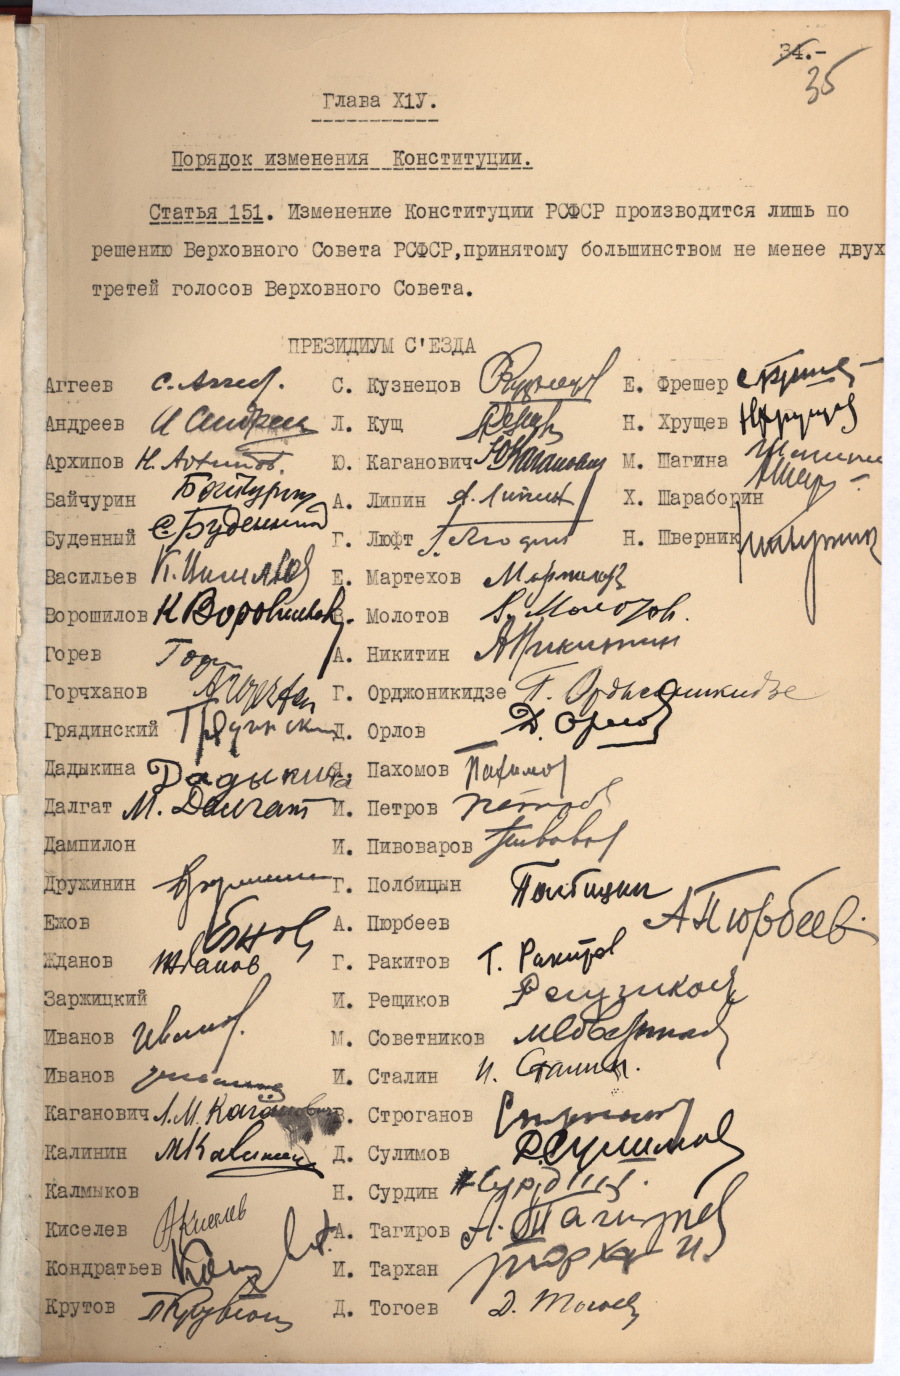 34.-
35
Глава Х1У.
Порядок изменения Конституции.
Статья 151. Изменение Конституции РСФСР производится лишь по
решению Верховного Совета РСФСР,принятому большинством не менее двух
третей голосов Верховного Совета.
ПРЕЗИДИУМ С'ЕЗДА
Аггеев
Андреев
Архипов Н. Архипов.
Байчурин Байчурин
Буденный С. Буденный
Васильев
Ворошилов К Ворошилов
Горев
Горчханов
Грядинский Грядинский
Дадыкина Дадыкина
Далгат М. Далгат
Дампилон
Дружинин
Ежов Ежов
Жданов Жданов
Заржицкий
Иванов Иванов.
Иванов
Каганович Л.М. Каганович
Калинин М Калинин
Калмыков
Киселев А Киселев
Кондратьев
Крутов
С. Кузнецов
Л. Кущ
Ю. Каганович Ю Каганович
А. Липин А. Липин
Г. Люфт
Е. Мартехов Мартехов
В. Молотов В. Молотов.
А. Никитин А Никитин
Г. Орджоникидзе Г. Орджоникидзе
Д. Орлов Д. Орлов
Я. Пахомов Пахомов
И. Петров Петров
И. Пивоваров Пивоваров
Г. Полбицын Полбицын
А. Пюрбеев А Пюрбеев.
Г. Ракитов Г. Ракитов
И. Рещиков
М. Советников
И. Сталин И. Сталин.
В. Строганов
Д. Сулимов Д. Сулимов
Н. Сурдин Н Сурдин.
А. Тагиров А. Тагиров
И. Тархан Тархан И.
Д. Тогоев Д. Тогоев
Е. Фрешер
Н. Хрущев Н Хрущев
М. Шагина
Х. Шараборин
Н. Шверник